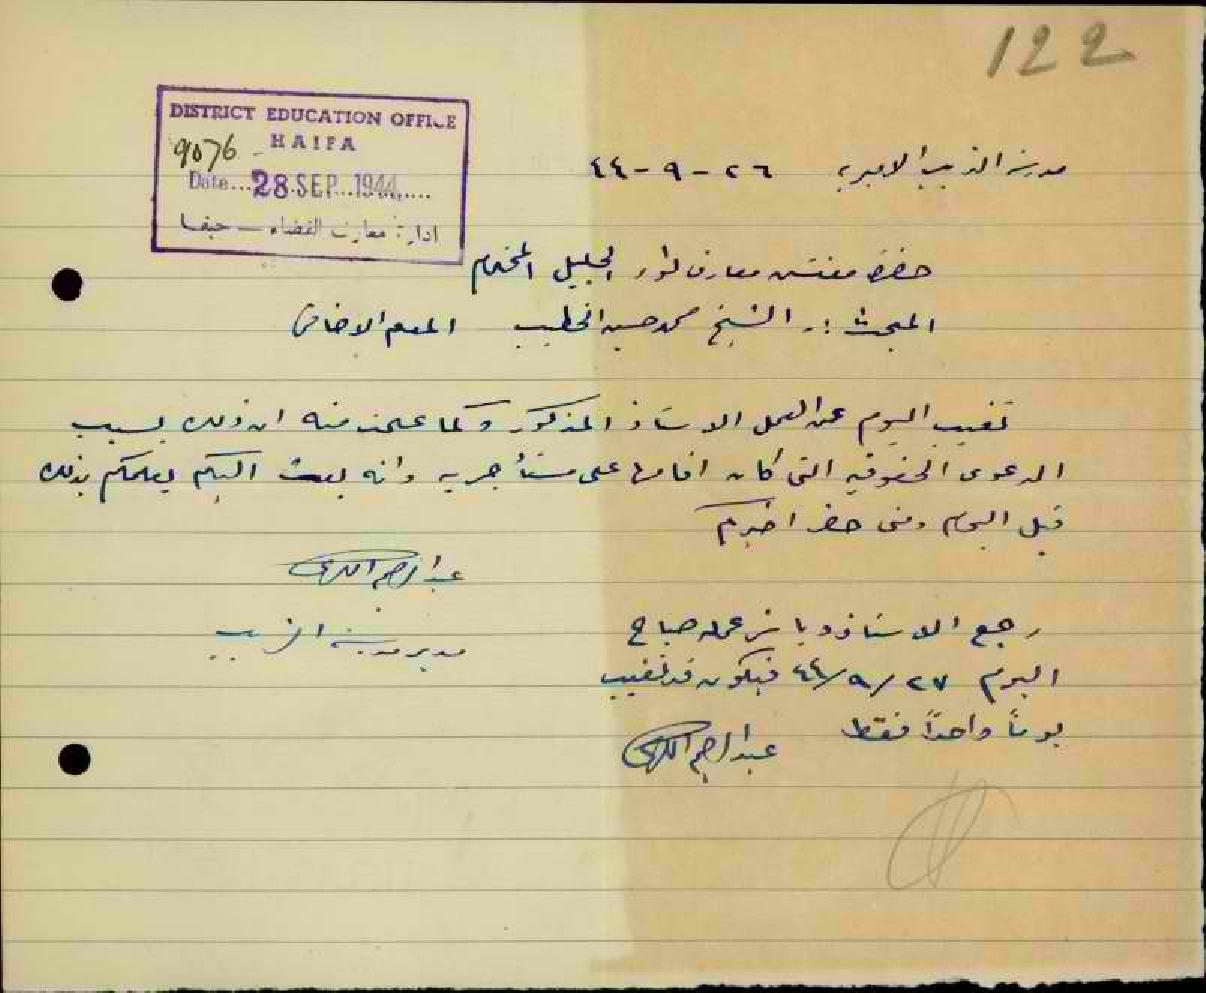 122
DISTRICT EDUCATION OFFICE
HAIFA
9076
Date... 28 SEP. 1944
ادارة معارف القضاء - حيفا
مدرسة الزيب الاميرية ٢٦-٩-٤٤
حضرة مفتش معارف لواء الجليل المحترم
المبحث :- الشيخ محمد حسين الخطيب المعلم الاضافي
تغيب اليوم عن العمل الاستاذ المذكور وكما علمت منه ان ذلك بسبب
الدعوى الحقوقيه التي كان اقامها على مستأجريه وانه بعث اليكم يعلمكم بذلك
قبل اليوم ومتى حضر اخبركم
عبد الرحيم
مدير مدرسة الزيب
رجع الاستاذ وباشر عمله صباح
اليوم ٢٧/٩/٤٤ فيكون قد تغيب
يوماً واحداً فقط
عبد الرحيم